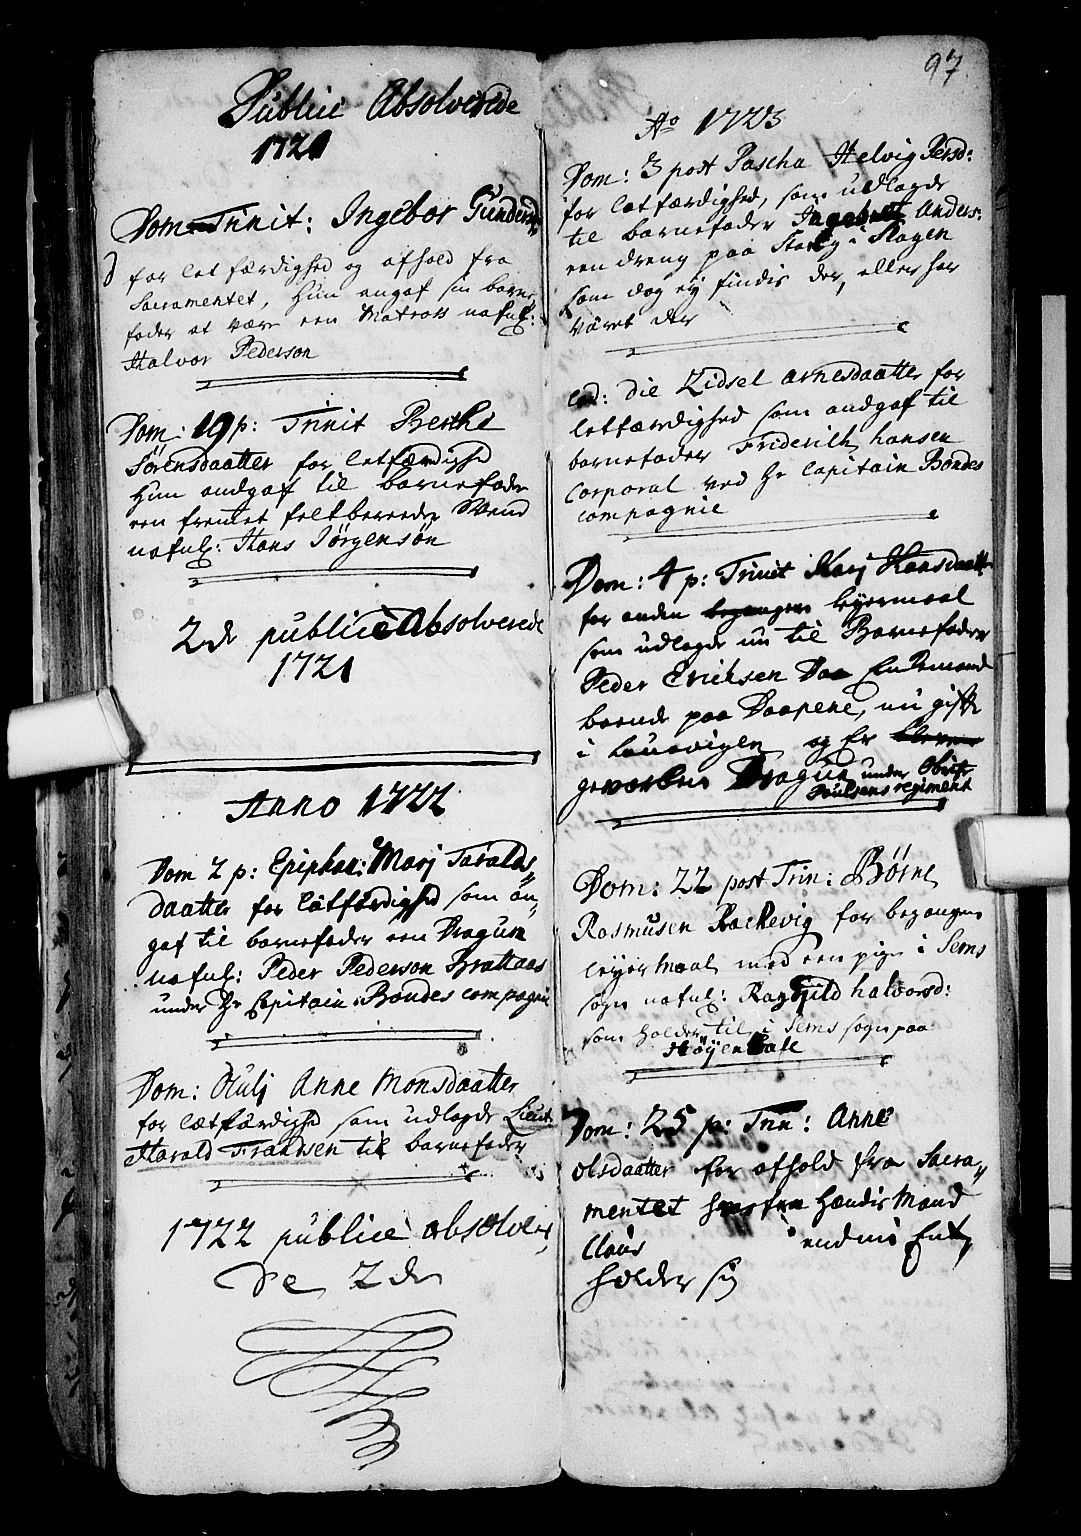 Publice Absolverede
1721
Dom Trinit: Ingebor Gunders
for letfærdighed og afhold fra
Sacramentet, Hun angaf sin barne
fader at være een Matros nafnl:
Halvor Pederson
Dom: 19 p: Trinit Berthe
Sörensdaatter for letfærdighed
Hun andgaf til barnefader
een fremmet feltbereeder Svend
nafnl: Hans Jörgensön
2de publice Absolverede
1721
Anno 1722
Dom 2 p: Epiphan: Marj Taralds
daatter for letfærdighed som an¬
gaf til barnefader een Dragun
nafnl: Peder Pederson Brattaas
under Hr Capitain Bondes compagnie
Dom: Oculj Anne Monsdaatter
for letfærdighed som udlagde Lieut
Harald Frandsen til barnefader
1722 publice absolver
de 2de
97
Ao 1723
Dom: 3 post Pascha Helvig Persd:
for letfærdighed, som udlagde
til barnefader Ingebret Anders:
een dreng paa i Slagen
som dog ej findis der, eller har
været der
eod: die Zidsel arnesdaatter for
letfærdighed som andgaf til
barnefader Friderich hansen
Corporal ved Hr Capitain Bondes
compagnie
Dom: 4 p: Trinit Marj Hansdaatt
for anden begangen leyermaal
som udlagde nu til Barnefader
Peder Erichsen Daa Enkemand
boende paa Daapene, nu gift
i Laurvigen og Er
geworben Dragun under Obrist
Poulsens regiment
Dom: 22 post Trin: Börne
Rasmusen Rackevig for begangen
leyermaal med een pige i Sems
sogn nafnl: Raghild halvorsd:
som holder til i Sems sogn paa
Höyen
Dom: 25 p: Trin: Anne
olsdaatter for afhold fra Sacra¬
mentet hendis Mand
Claus endnu
holder sig